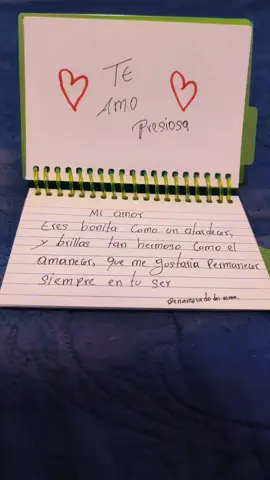 TE
AMO
Presiosa
Mi amor
Eres bonita como un atardecer,
y brillas tan hermoso como el
amanecer, que me gostaria Permanecer
siempre en tu ser